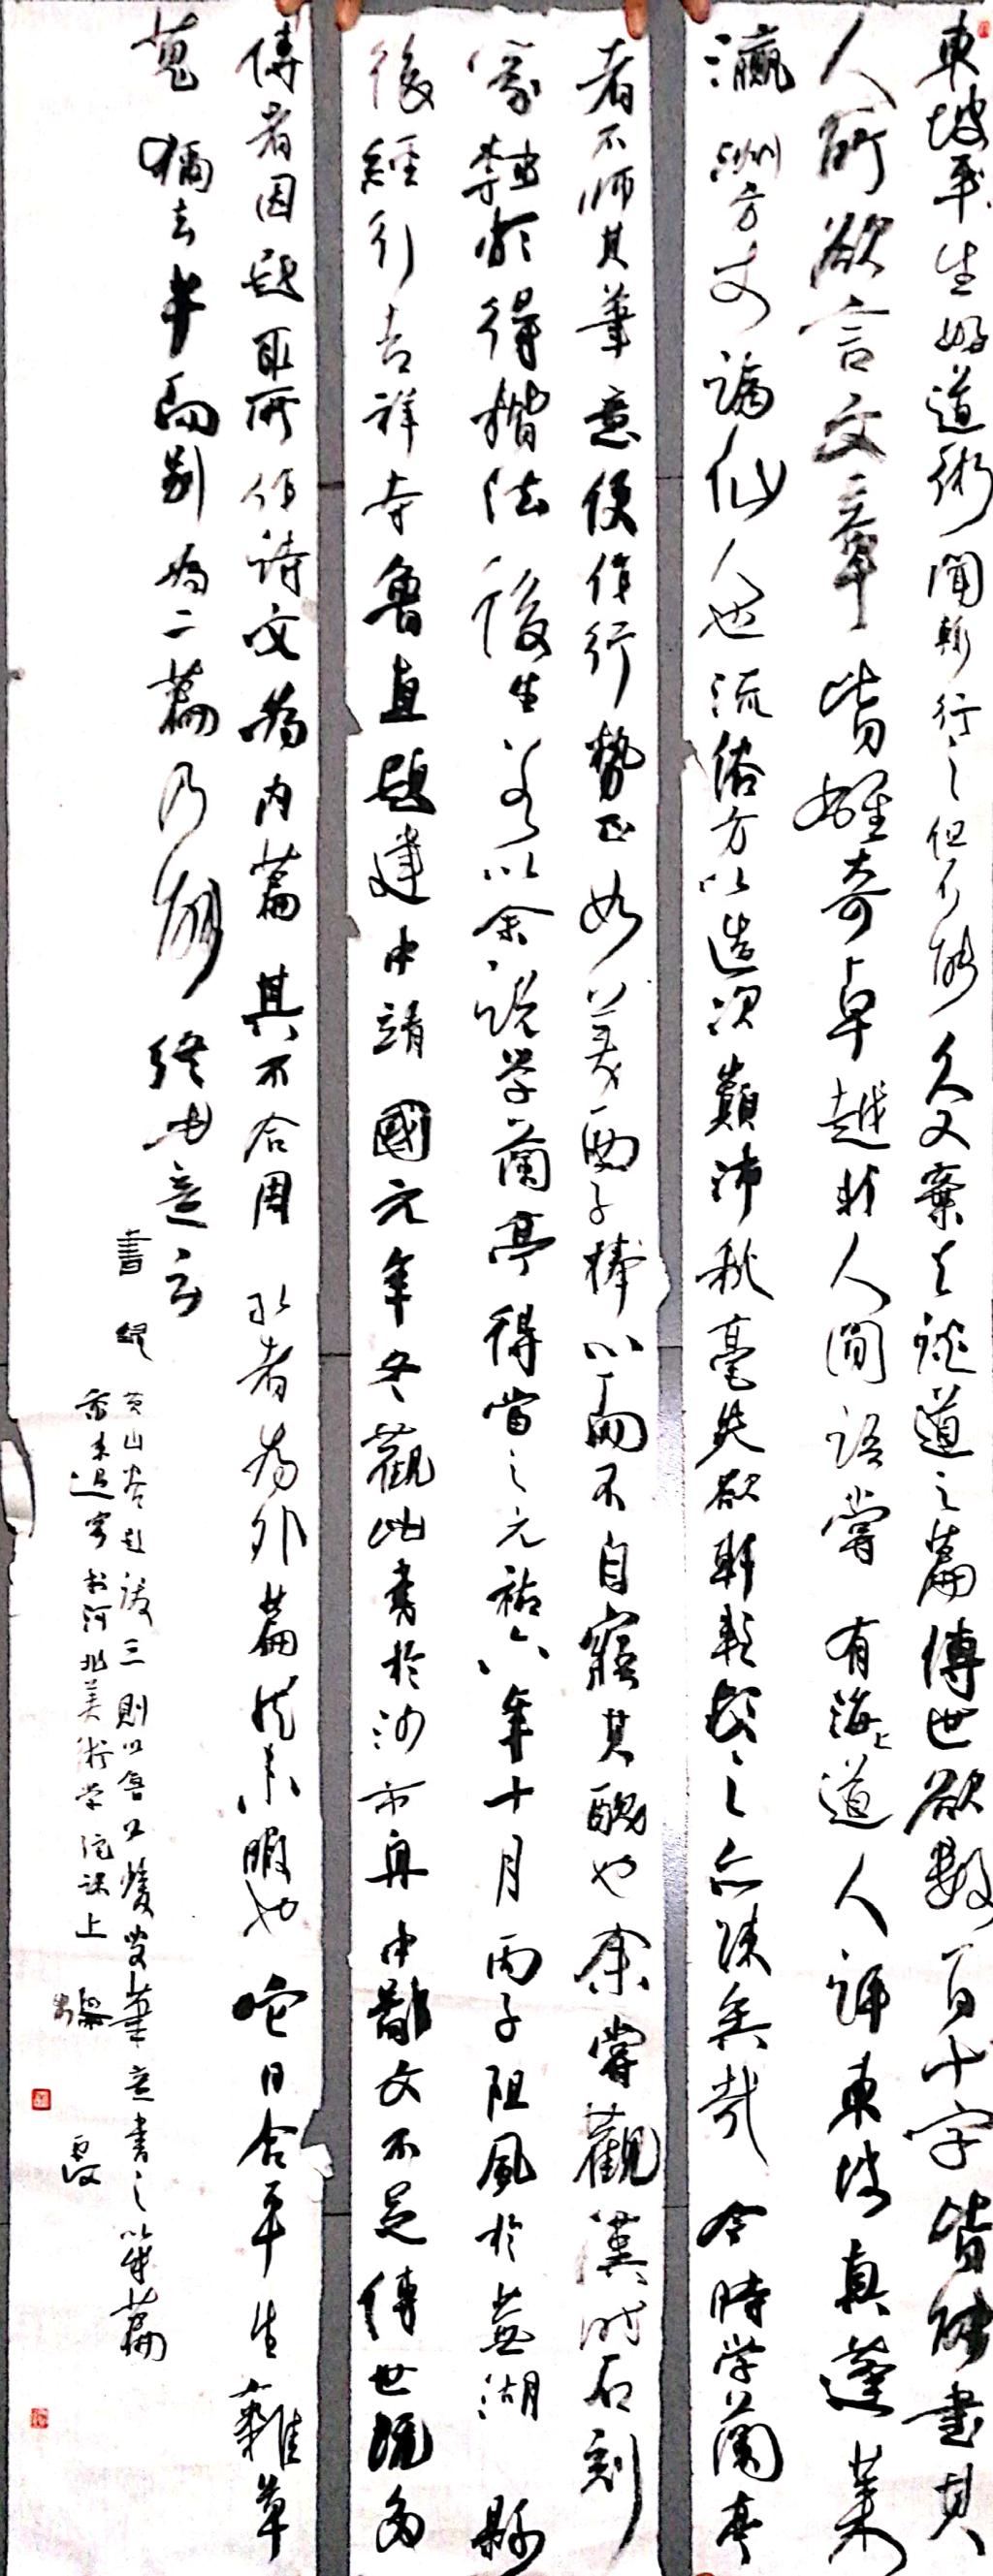 東坡平生好道術聞輒行之但不能久又棄去談道之篇傳世欲數百千字皆能書其
人所欲言文章皆雄奇卓越非人間語嘗有海上道人評東坡真蓬萊
瀛洲方丈謫仙人也流俗方以造次顛沛秋毫失欲軒輊之亦疎矣哉 今時学蘭亭
者不師其筆意便作行勢正如美西子捧心而不自寤其醜也余嘗觀漢時石刻
篆隸頗得楷法後生若以余說学蘭亭得當之元祐六年十月丙子阻風於蕪湖 縣
後經行吉祥寺魯直題建中靖國元年冬觀此書於沙市舟中鄙文不足傳世既多
傳者因題取所作詩文為內篇其不合周孔者為外篇然未暇也它日合平生雜草
蒐獮去半而別為二篇乃能終此意云
書 紀
黃山谷題跋三則以
筆意書之以成篇
於河北美術学院課上